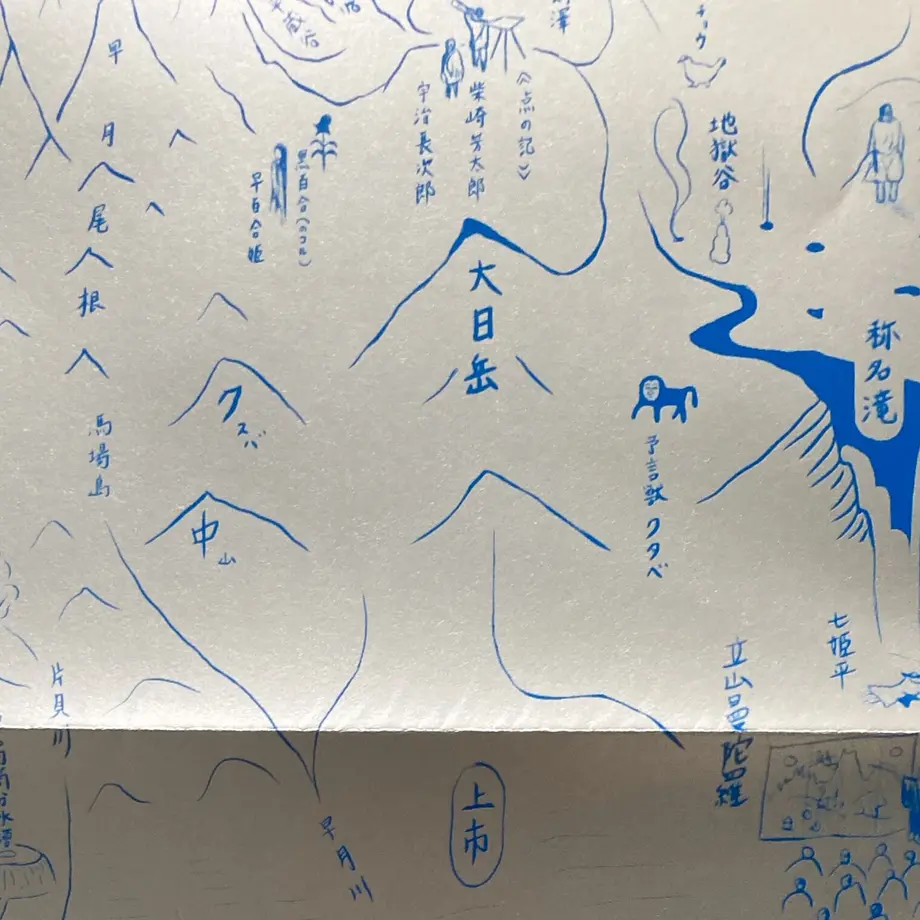 チョウ
早月尾根
馬場島
地獄谷
《点の記》
柴崎芳太郎
宇治長次郎
黒百合(のコル)
早百合姫
大日岳
称名滝
クズバ
中山
予言獣クタベ
七姫平
立山曼陀羅
片貝川
早月川
上市